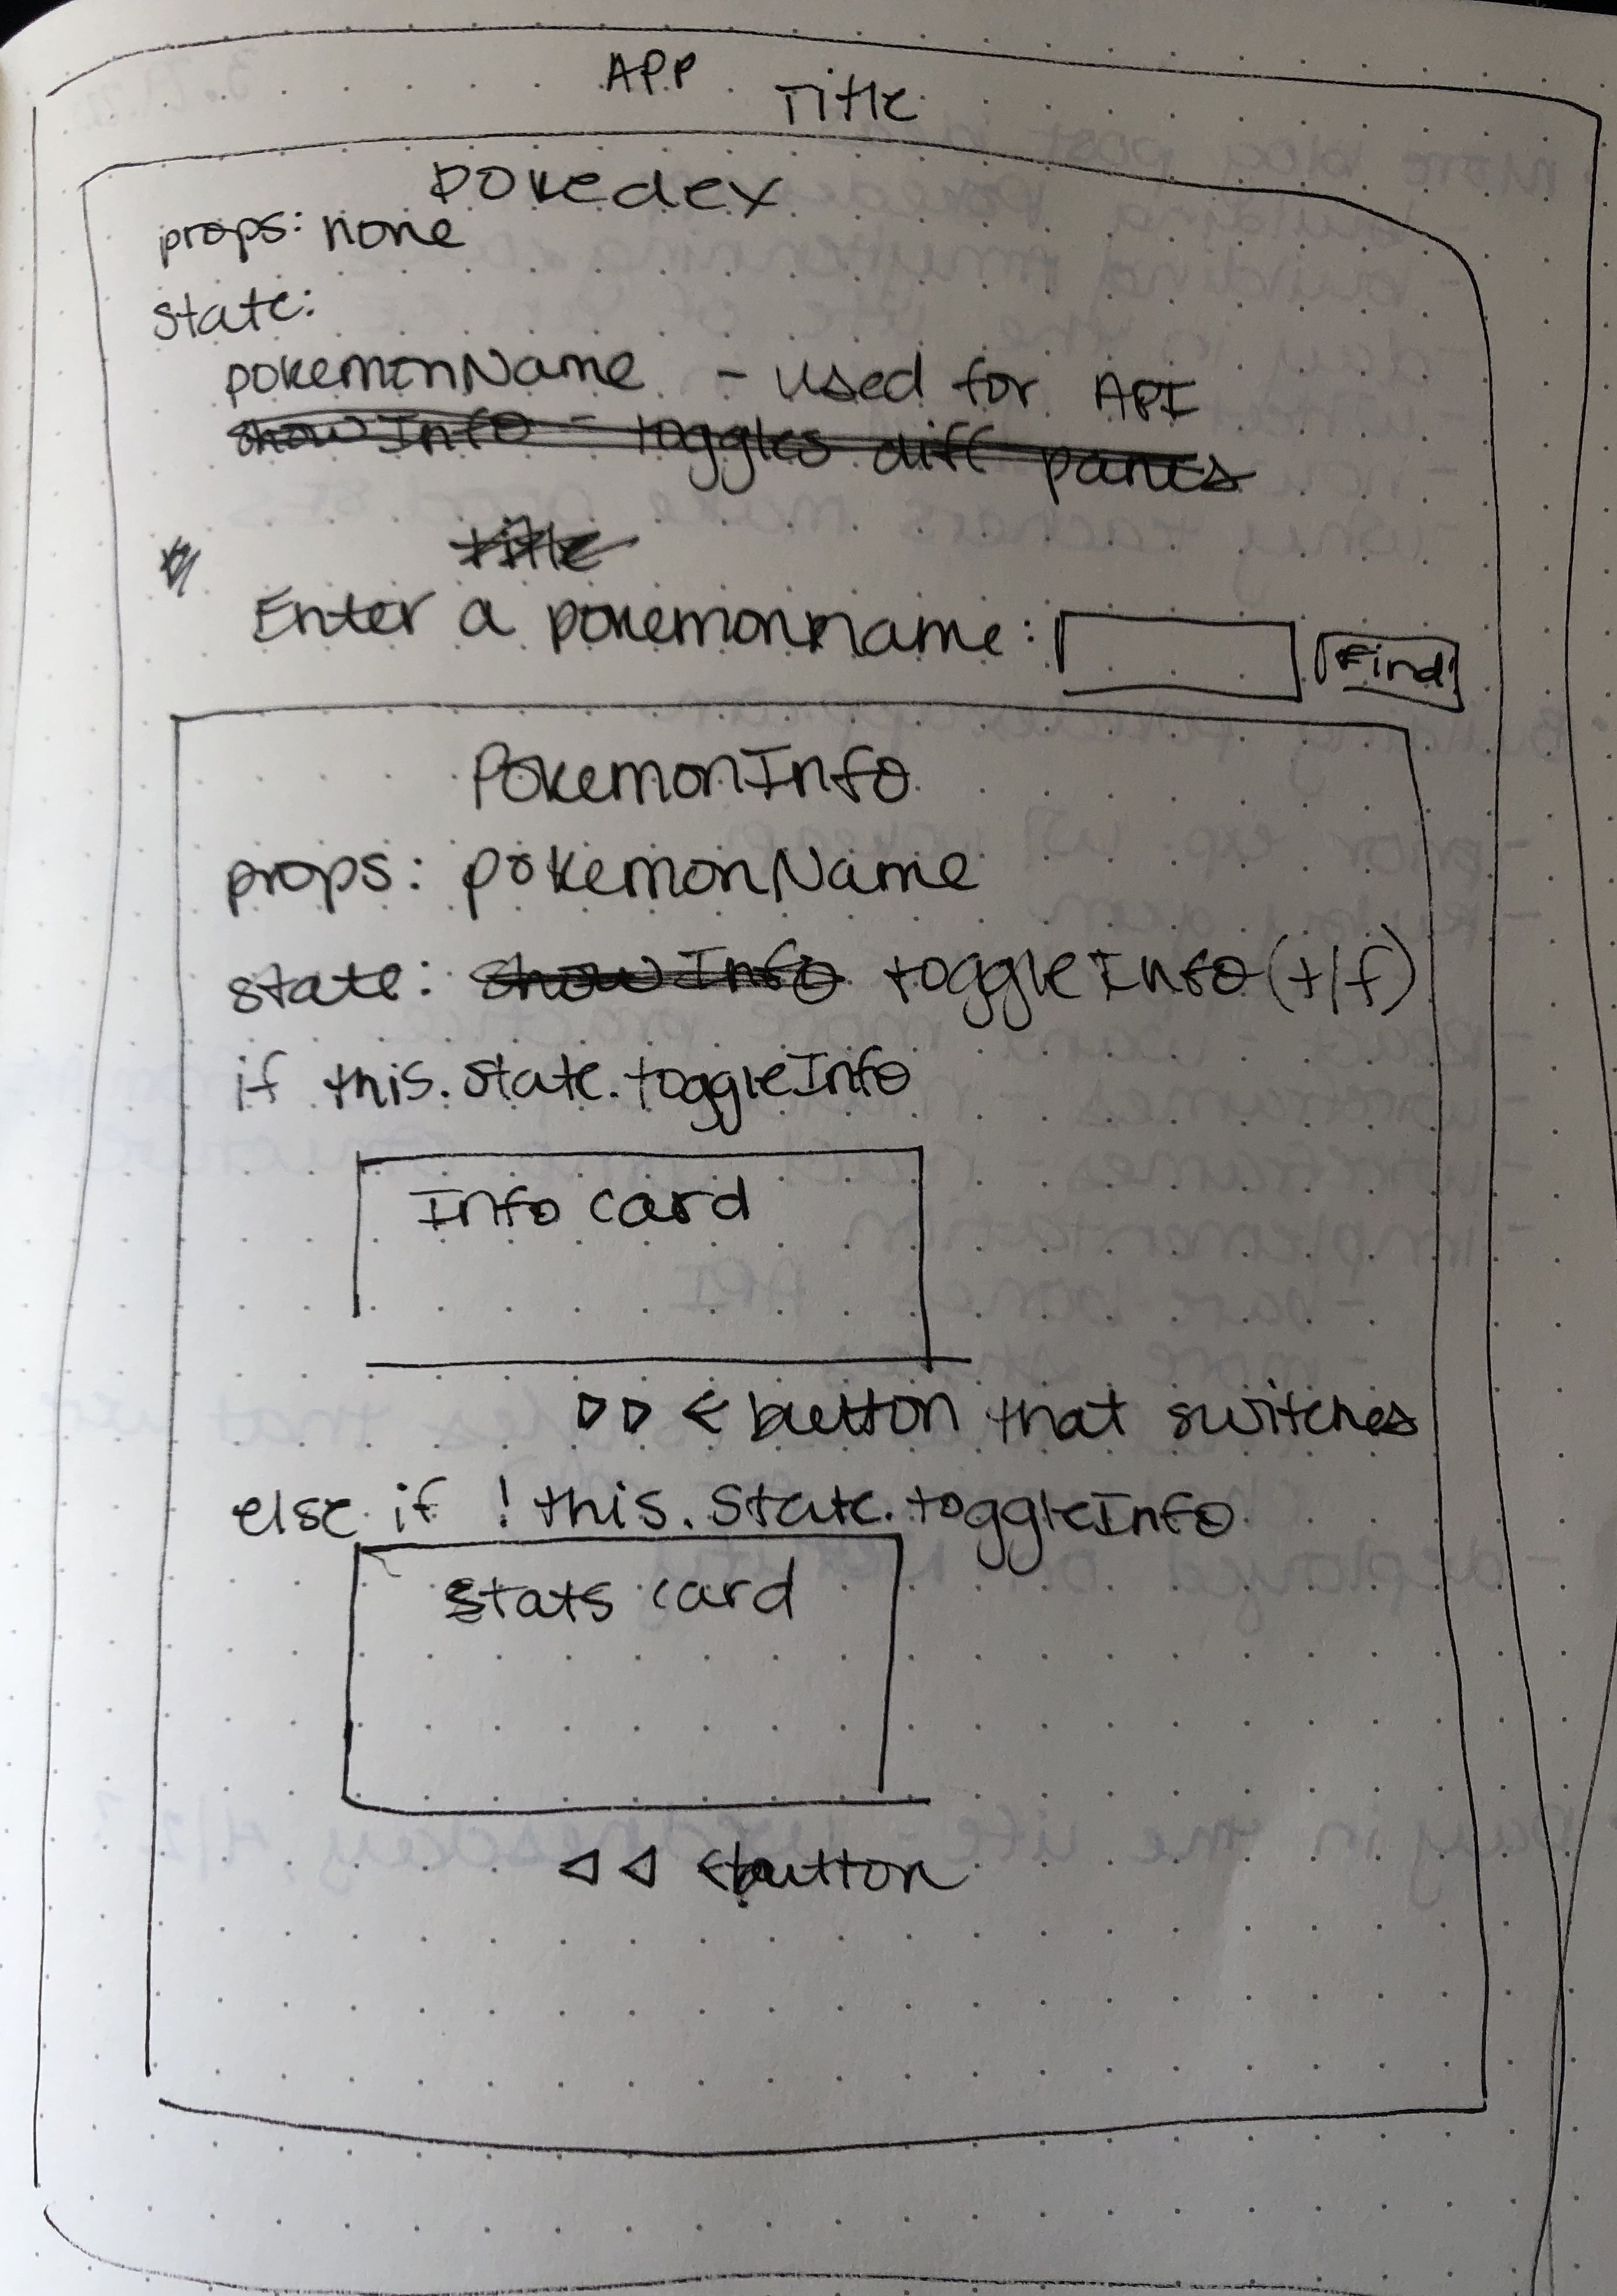 APP
Title
Pokedex
props: none
state:
pokemonName - used for API
showInfo - toggles diff panes
title
Enter a pokemonname:
Find
PokemonInfo
props: pokemonName
state: showInfo toggleInfo (t/f)
if this.state.toggleInfo
Info card
▷▷ < button that switches
else if !this.state.toggleInfo
stats card
◁◁ < button